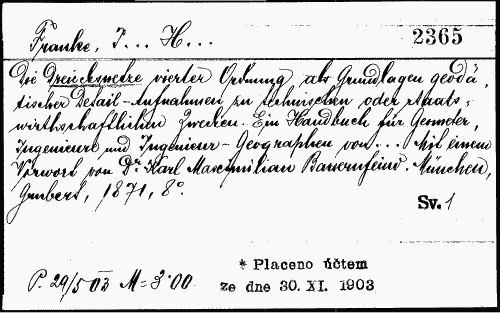 Franke, J... H...
2365
Die Dreiecksnetze vierter Ordnung als Grundlagen geodä-
tischer Detail-Aufnahmen zu technischen oder staats-
wirthschaftlichen Zwecken. Ein Handbuch für Geometer,
Ingenieure und Ingenieur-Geographen von... Mit einem
Vorwort von Dr. Karl Maximilian Bauernfeind. München,
Grubert, 1871, 8°.
Sv. 1
* Placeno účtem
P. 29/5 03 M = 3·00 ze dne 30. XI. 1903